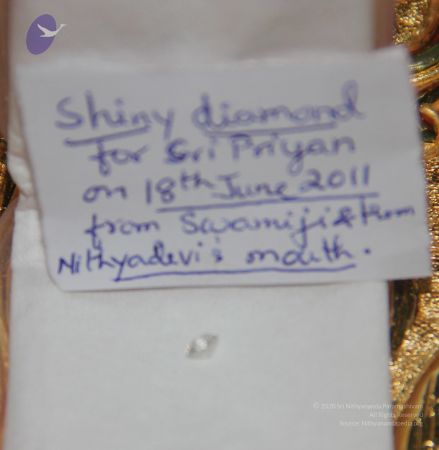 Shiny diamond
for Sri Priyan
on 18th June 2011
from Swamiji & from
Nithyadevi's mouth.
© 2020 Sri Nithyananda Paramashivam
All Rights Reserved
Source: Nithyanandapedia.org